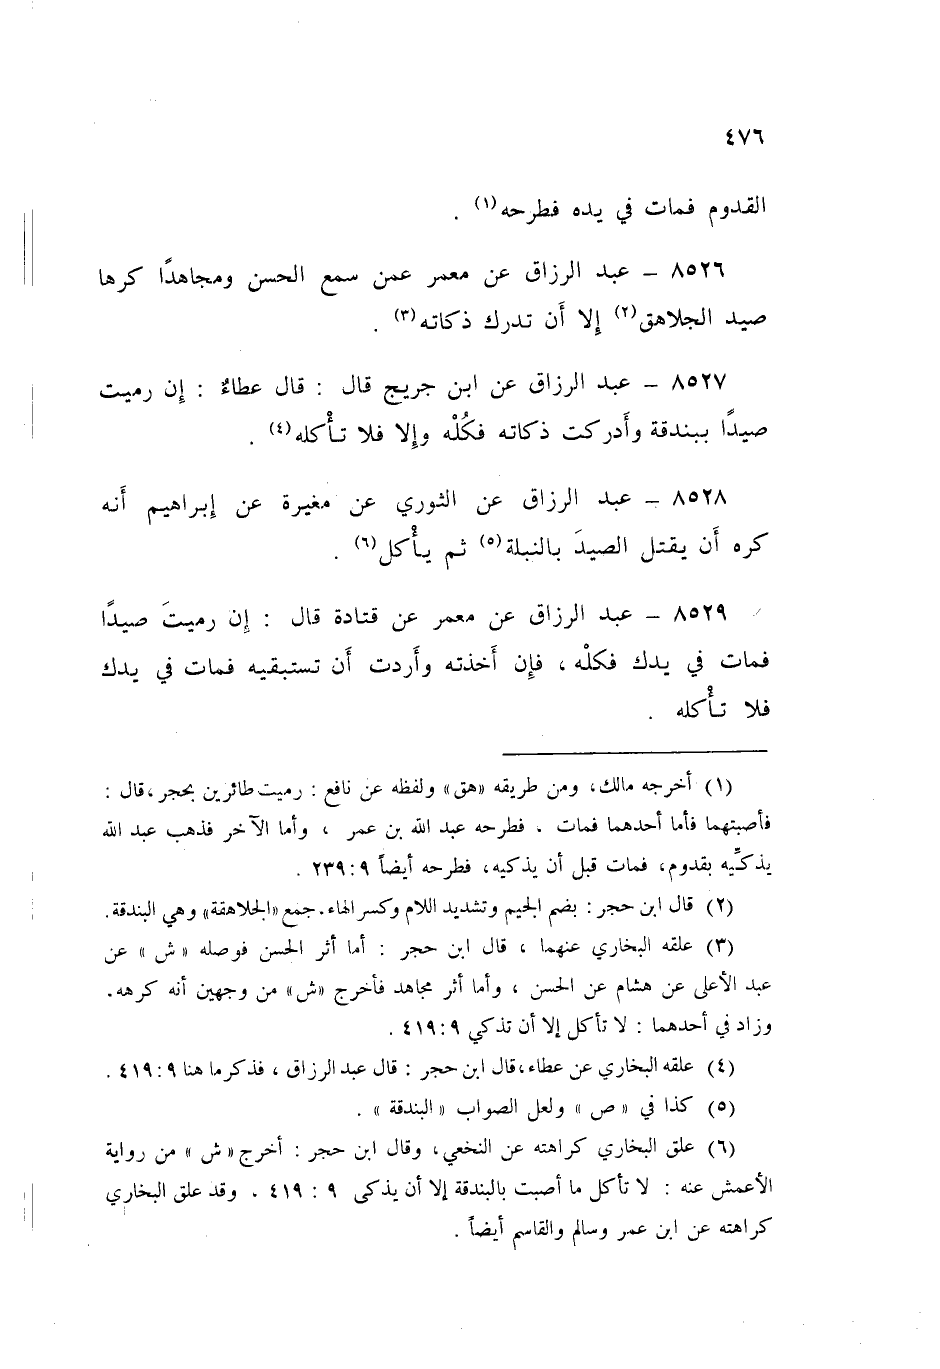 ٤٧٦
القدوم فمات في يده فطرحه(١) .
٨٥٢٦ – عبد الرزاق عن معمر عمن سمع الحسن ومجاهدًا كرها
صيد الجلاهق(٢) إلا أَن تدرك ذكاته(٣) .
٨٥٢٧ – عبد الرزاق عن ابن جريج قال : قال عطاءٌ : إن رميت
صيدًا ببندقة وأَدركت ذكاته فكُلْه وإلا فلا تأْكله(٤) .
٨٥٢٨ – عبد الرزاق عن الثوري عن مغيرة عن إبراهيم أَنه
كره أَن يقتل الصيدَ بالنبلة(٥) ثم يأْكل(٦) .
٨٥٢٩ – عبد الرزاق عن معمر عن قتادة قال : إن رميتَ صيدًا
فمات في يدك فكلْه ، فإن أَخذته وأَردت أَن تستبقيه فمات في يدك
فلا تأْكله .
(١) أخرجه مالك، ومن طريقه «هق» ولفظه عن نافع : رميت طائرين بحجر ،قال :
فأصبتهما فأما أحدهما فمات . فطرحه عبد الله بن عمر ، وأما الآخر فذهب عبد الله
يذكّيه بقدوم، فمات قبل أن يذكيه، فطرحه أيضاً ٩ : ٢٣٩ .
(٢) قال ابن حجر : بضم الجيم وتشديد اللام وكسر الهاء. جمع «الجلاهقة» وهي البندقة.
(٣) علقه البخاري عنهما ، قال ابن حجر : أما أثر الحسن فوصله « ش » عن
عبد الأعلى عن هشام عن الحسن ، وأما أثر مجاهد فأخرج «ش» من وجهين أنه كرهه.
وزاد في أحدهما : لا تأكل إلا أن تذكي ٩ : ٤١٩ .
(٤) علقه البخاري عن عطاء،قال ابن حجر : قال عبد الرزاق ، فذكر ما هنا ٩ : ٤١٩ .
(٥) كذا في « ص » ولعل الصواب « البندقة » .
(٦) علق البخاري كراهته عن النخعي، وقال ابن حجر : أخرج« ش » من رواية
الأعمش عنه : لا تأكل ما أصبت بالبندقة إلا أن يذكى ٩ : ٤١٩ . وقد علق البخاري
كراهته عن ابن عمر وسالم والقاسم أيضاً .